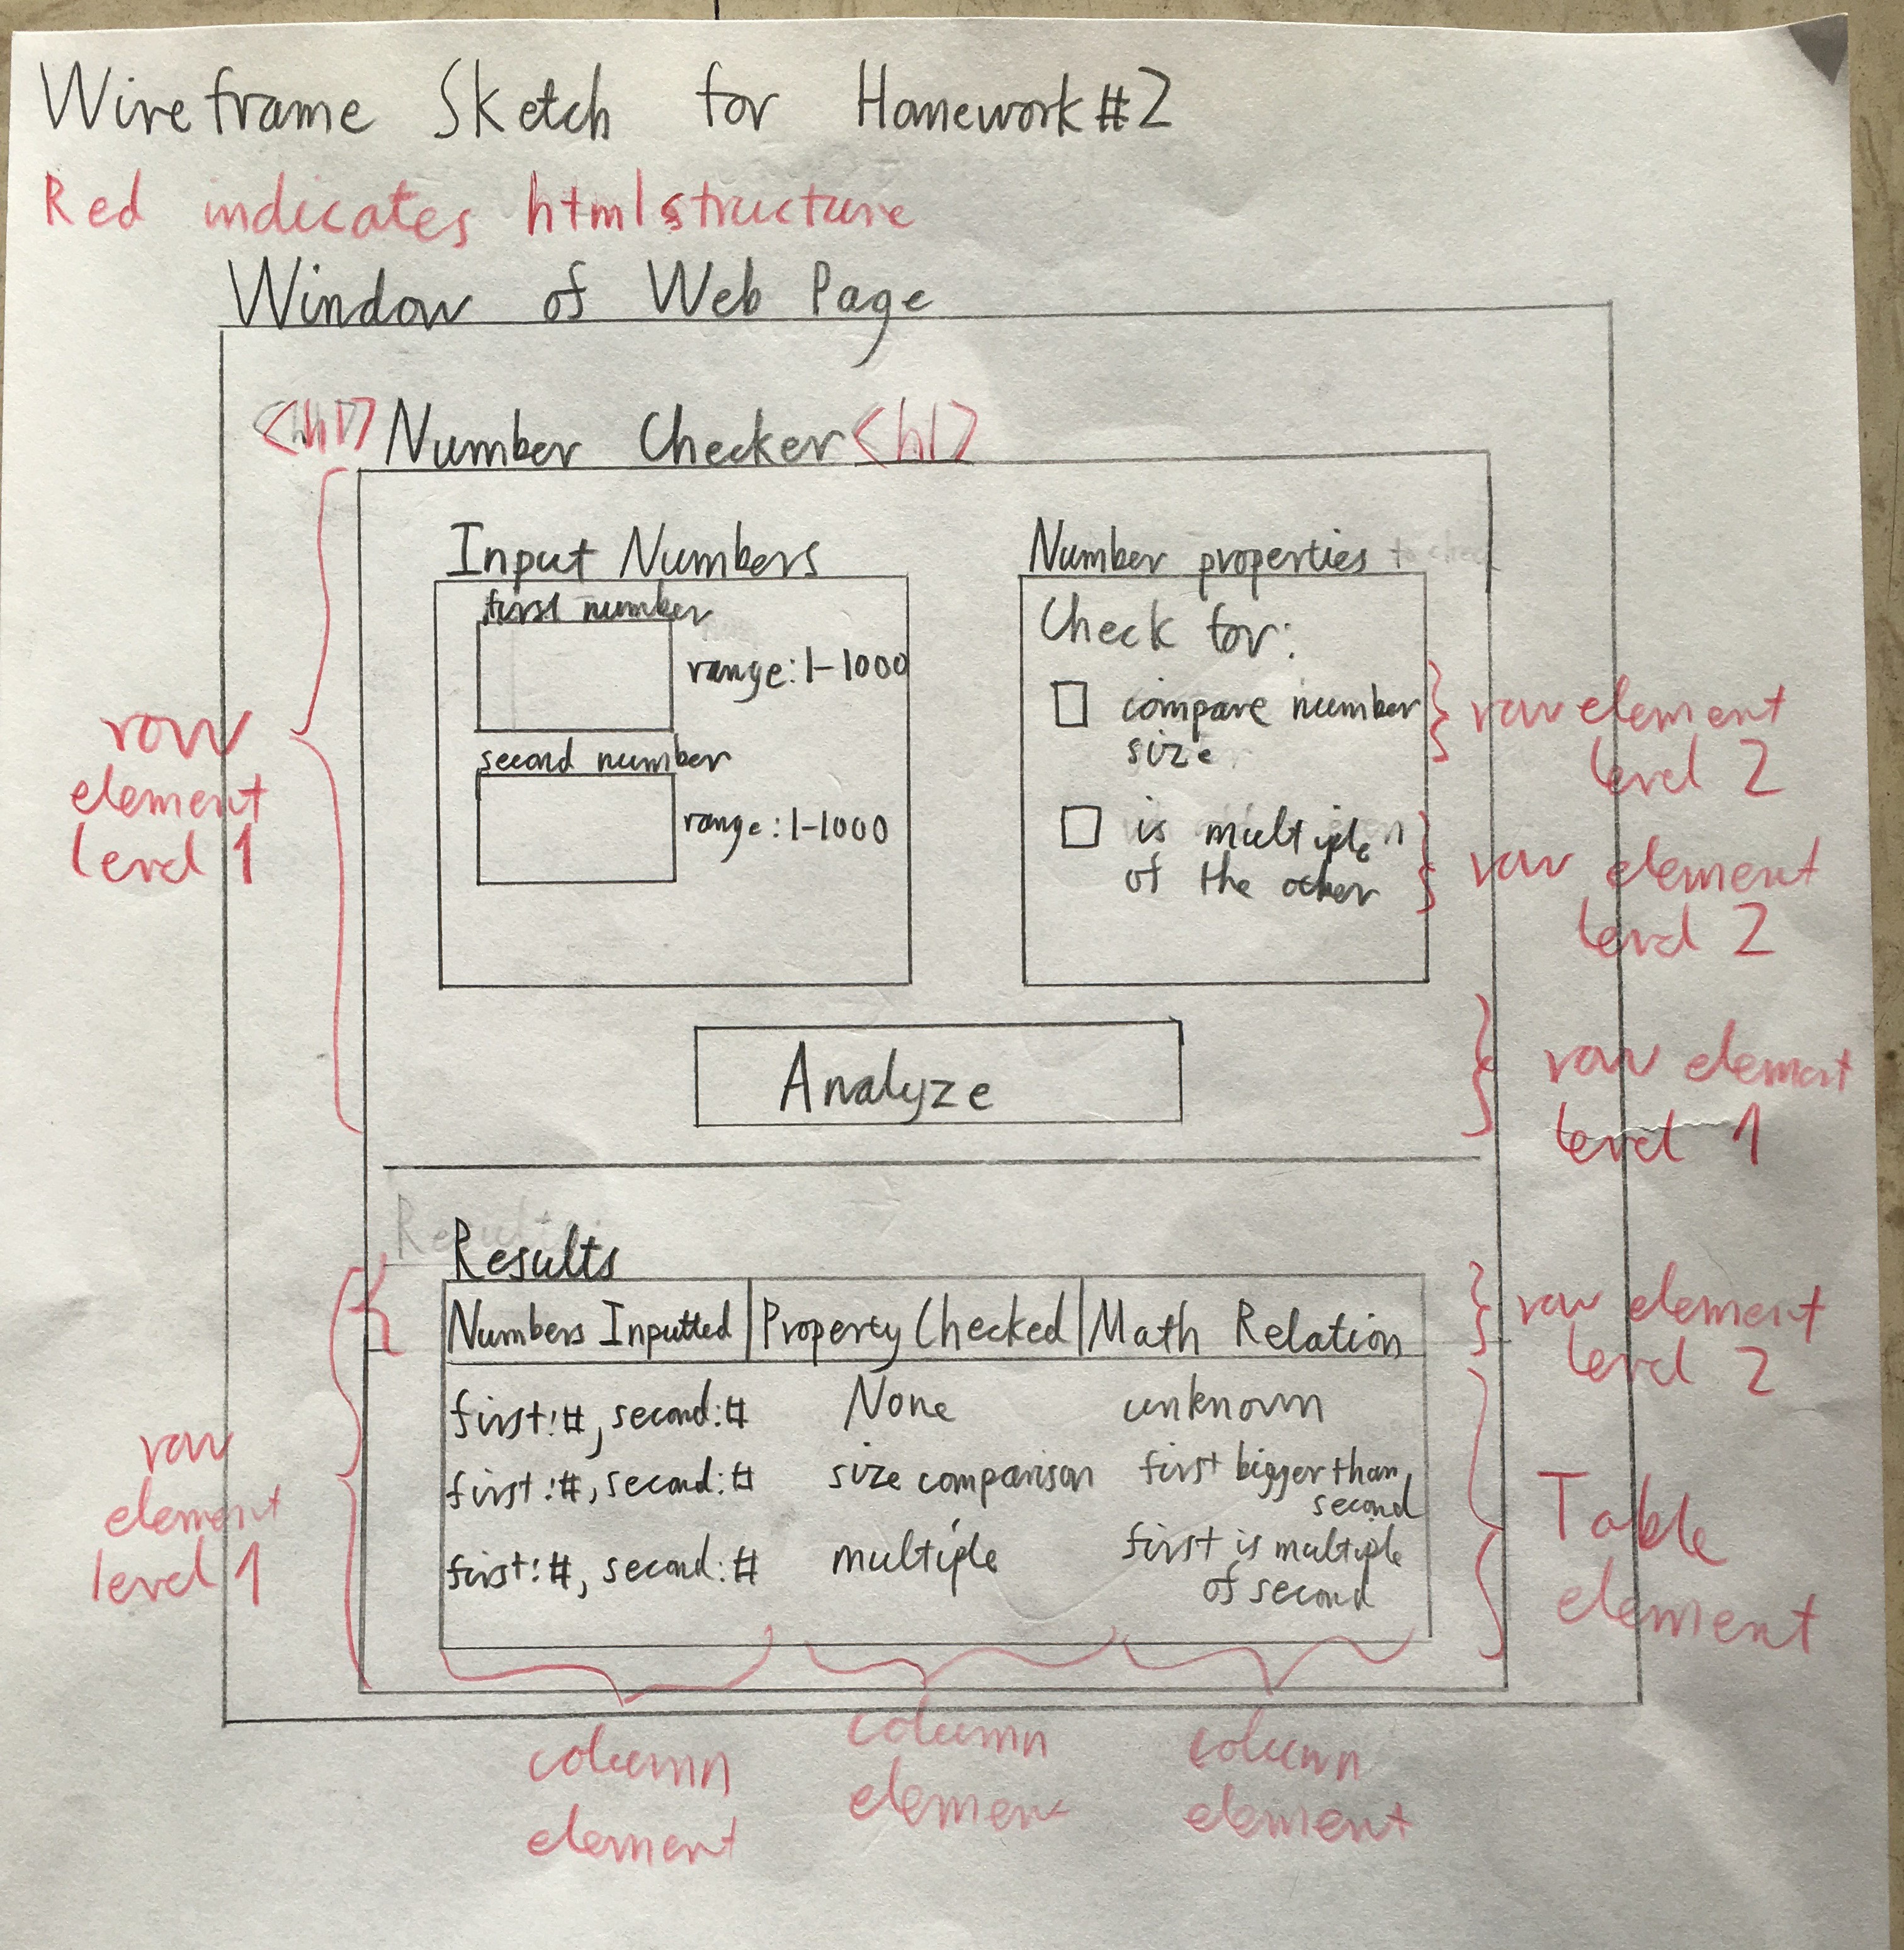 Wireframe Sketch for Homework #2
Red indicates html structure
Window of Web Page
<h1> Number Checker <h1>
Input Numbers
first number
range: 1-1000
second number
range: 1-1000
Number properties to check
Check for:
compare number
size
is multiple
of the other
row element
level 2
row element
level 2
row
element
level 1
Analyze
row element
level 1
Results
Numbers Inputted Property Checked Math Relation
row element
level 2
first:#, second:# None unknown
first:#, second:# size comparison first bigger than
second
first:#, second:# multiple first is multiple
of second
row
element
level 1
Table
element
column
element
column
element
column
element